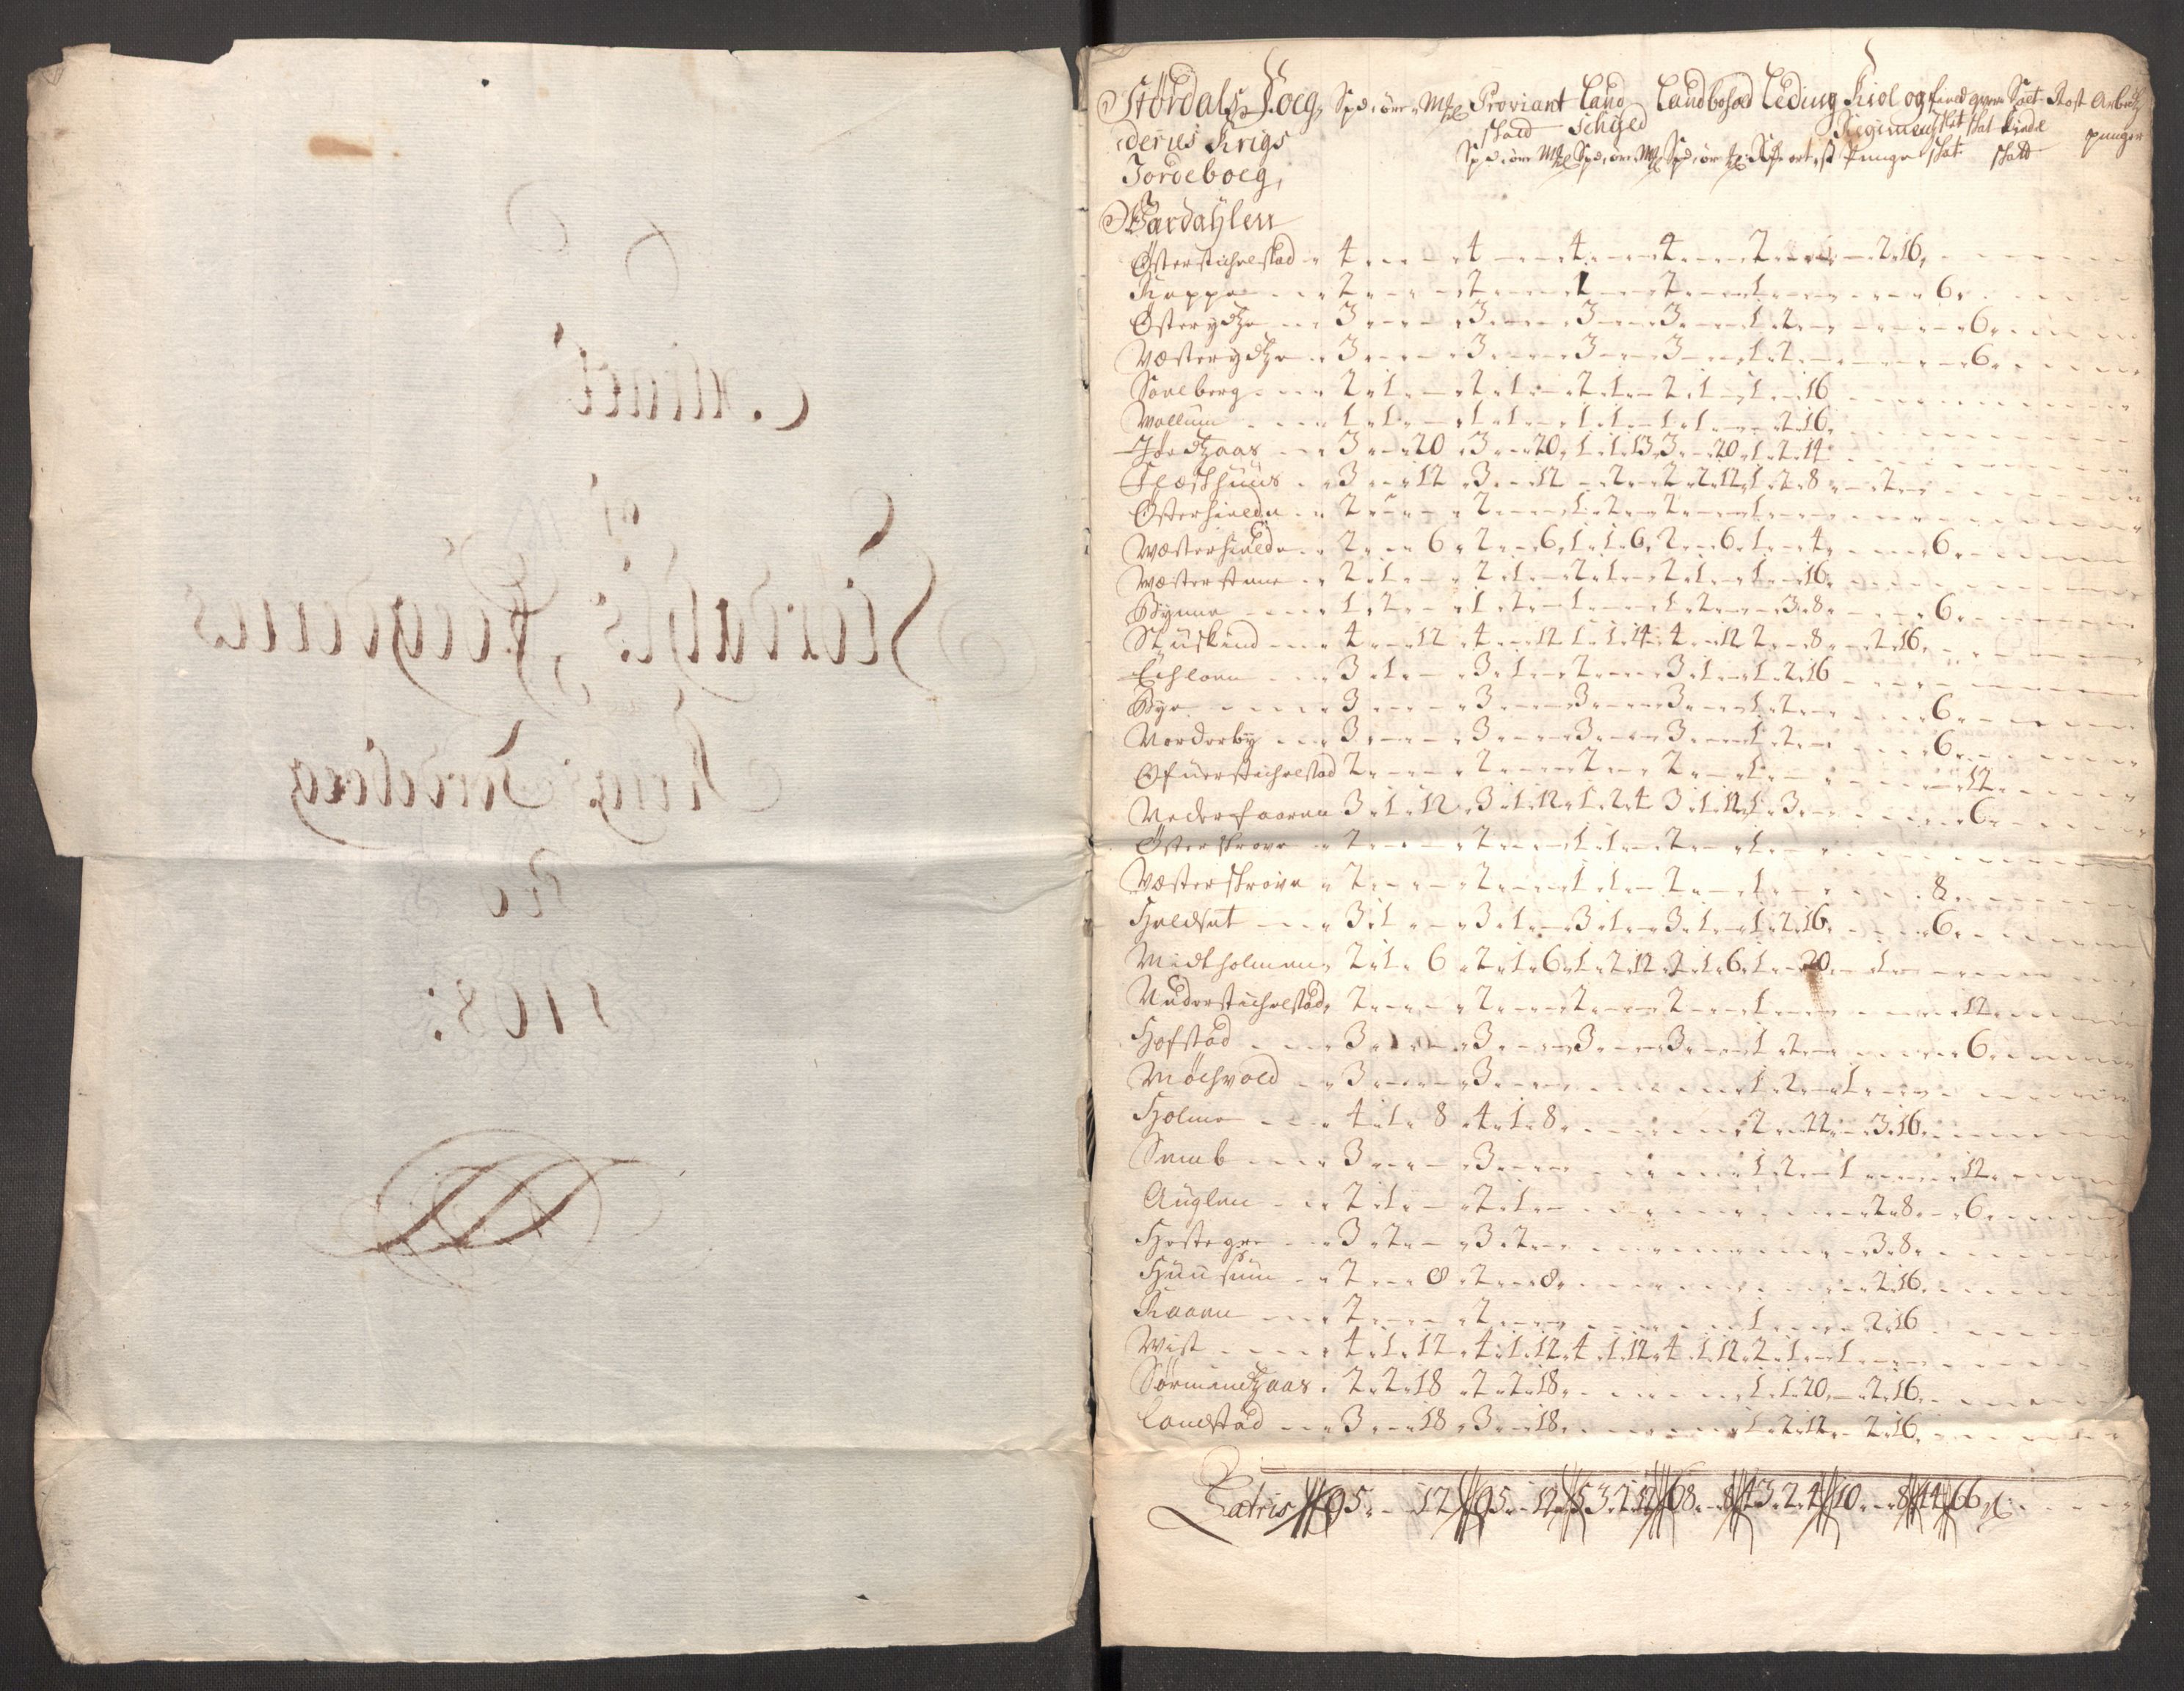 Extract
af
Størdahls Foegderies
Krigs Jordeboeg
Pro
1708:
Størdahls Foeg Spd øre Mkl Proviant Land Landbohold Leding
deries Krigs skatt schyld
Jordeboeg,
Wardahlen
Østerstichelstad 4 4 4 4 2 2 16
Kappe 2 2 1 2 1 6
Østerydtze 3 3 3 3 1 2 6
Westerydtze 3 3 3 3 1 2 6
Saelberg 2 1 2 1 2 1 2 1 1 16
Wollum 1 1 1 1 1 1 1 1 2 16
Jørdtzaas 3 20 3 20 1 1 13 3 20 1 2 14
Flæskhuus 3 12 3 12 2 2 2 12 1 2 8 2
Østerhield 2 2 1 2 2 1
Westerhield 2 6 2 6 1 1 6 2 6 1 4 6
Westerstene 2 1 2 1 2 1 2 1 1 16
Bynne 1 2 1 2 1 1 2 3 8 6
Stiuskind 4 12 4 12 1 1 14 4 12 2 8 2 16
Echloen 3 1 3 1 2 3 1 1 2 16
Bye 3 3 3 3 1 2 6
Norderby 3 3 3 3 1 2 6
Øfuerstichelstad 2 2 2 2 1 12
Nederfaaren 3 1 12 3 1 12 1 2 4 3 1 12 1 3 6
Østerskrove 2 2 1 1 2 1
Westerskrove 2 2 1 1 2 1 8
Holdset 3 1 3 1 3 1 3 1 1 2 16 6
Midtholmen 2 1 6 2 1 6 1 2 12 2 1 6 1 20 1
Understichelstad 2 2 2 2 1 12
Hofstad 3 3 3 3 1 2 6
Møchvold 3 3 1 2 1
Holme 4 1 8 4 1 8 2 22 3 16
Semb 3 3 1 2 1 12
Auglen 2 1 2 1 2 8 6
Hostegre 3 2 3 2 3 8
Huusum 2 8 2 8 2 16
Raaen 2 2 1 2 16
Wist 4 1 12 4 1 12 4 1 12 4 1 12 2 1 1
Sørmindtzaas 2 2 18 2 2 18 1 1 20 2 16
Landstad 3 18 3 18 1 2 12 2 16
Latris 95 12 95 12 53 2 12 68 8 43 2 4 10 8 14 66